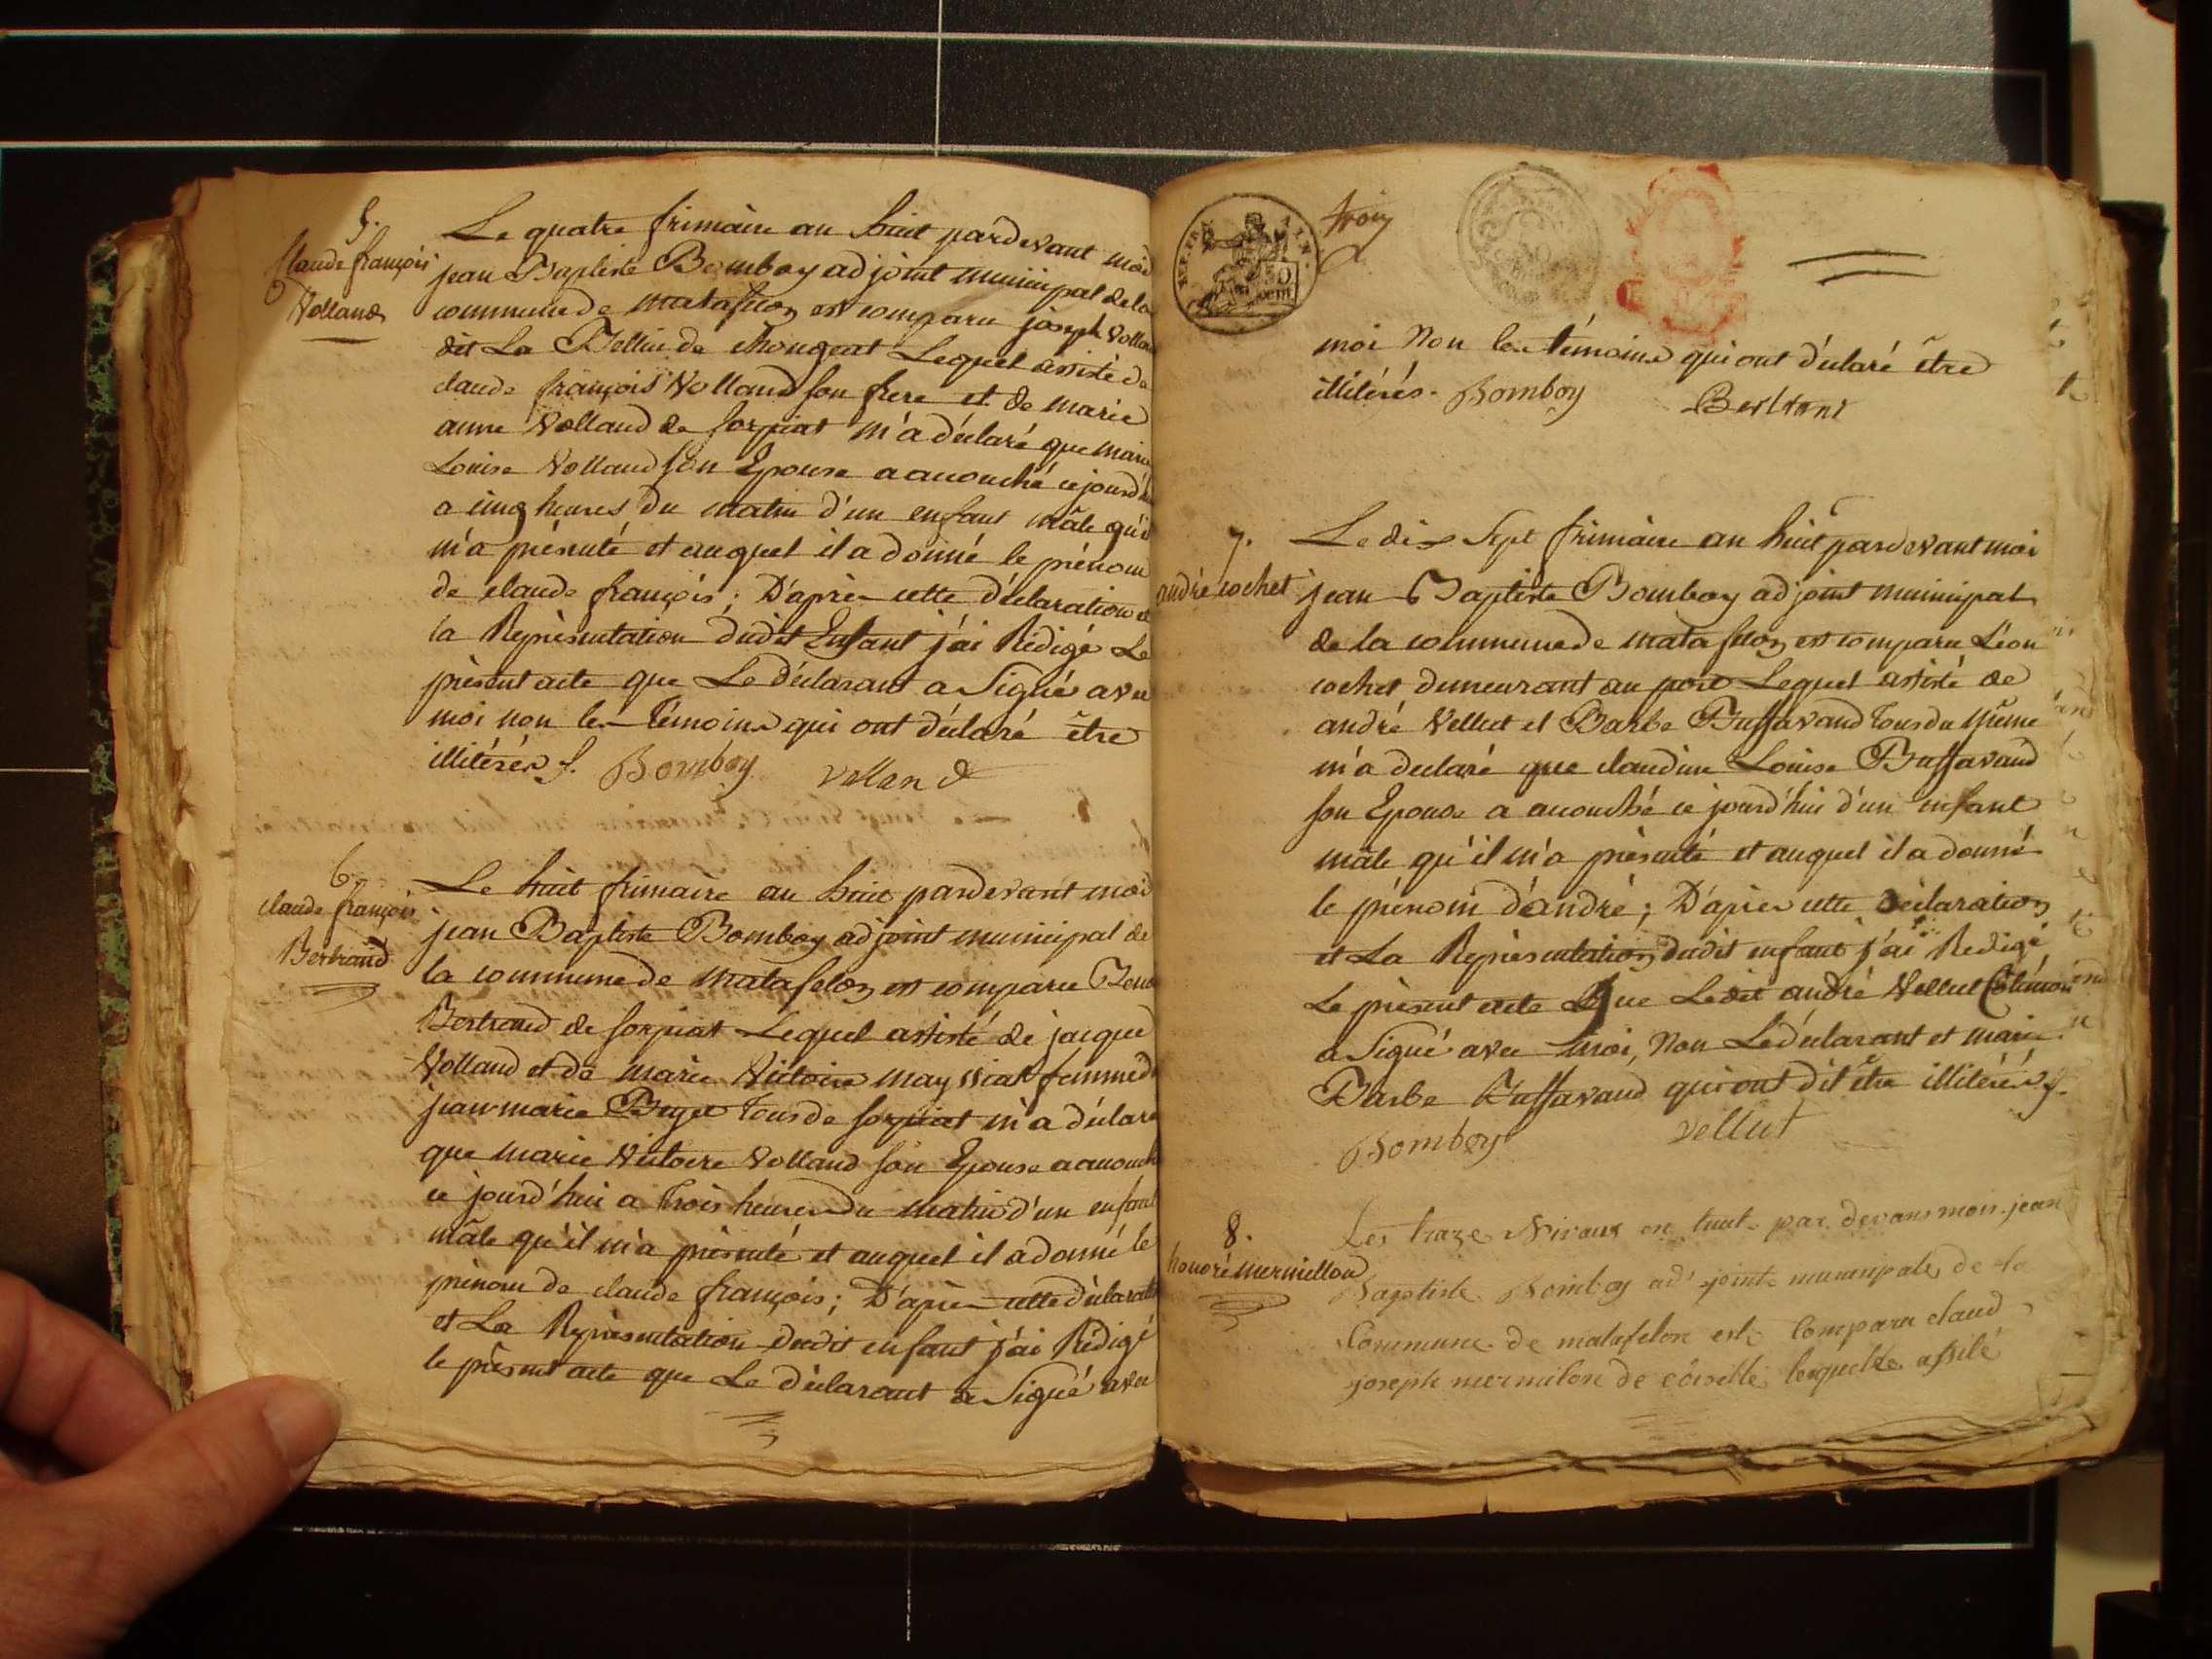 5.
Claude françois
Volland
Le quatre frimaire an huit pardevant moi
jean Baptiste Bomboy adjoint municipal de la
commune de matafelon est comparu joseph Volland
dit La de Chougeat Lequel assisté de
claude françois Volland son frere et de marie
anne Volland de sorpiat m'a déclaré que marie
Louise Volland son Epouse a acouché cejourd'hui
a cinq heures du matin d'un enfant mâle qu'il
m'a présenté et auquel il a donné le prénom
de claude françois; D'après cette déclaration et
la Représentation dudit Enfant j'ai Rédigé Le
présent acte que Le déclarant a Signé avec
moi non les Témoins qui ont déclaré être
illitérés. Bomboy volland
6.
claude françois
Bertrand
Le huit frimaire an huit pardevant moi
jean Baptiste Bomboy adjoint municipal de
la commune de matafelon est comparu
Bertrand de sorpiat Lequel assisté de jacque
Volland et de marie Victoire femme de
jean marie Buget tous de sorpiat m'a déclaré
que marie Victoire Volland son Epouse a acouché
ce jourd'hui a trois heures du matin d'un enfant
mâle qu'il m'a présenté et auquel il a donné le
prénom de claude françois; D'après cette déclaration
et La Représentation dudit enfant j'ai Rédigé
le présent acte que Le déclarant a Signé avec
trois
50
moi Non les témoins qui ont déclaré être
illitérés. Bomboy Bertrand
7.
andré cochet
Le dix Sept frimaire an huit pardevant moi
jean Baptiste Bomboy adjoint municipal
de la commune de matafelon est comparu Léon
cochet demeurant au port Lequel assisté de
andré Vellut et Barbe Buffavand tous du même
m'a declaré que claudine Louise Buffavand
son Epouse a acouché ce jourd'hui d'un enfant
mâle qu'il m'a présenté et auquel il a donné
le prénom d'andré; D'après cette déclaration
et La Représentation dudit enfant j'ai Redigé
Le présent acte Que Ledit andré Vellut témoin
a Signé avec moi, Non Le déclarant et marie
Barbe Buffavand qui ont dit être illitérés.
Bomboy vellut
8.
honoré mermillon
Les traze Nivaux en huit par devans moi jean
Baptiste Bomboy adjoint municipale de la
Commune de matafelon est Comparu claud
joseph mermilon de lequelle assité